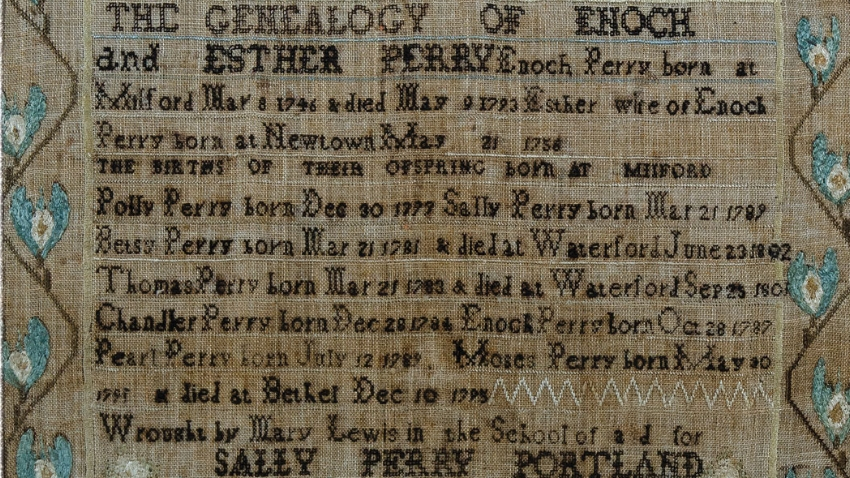 THE GENEALOGY OF ENOCH
and ESTHER PERRY Enoch Perry born at
Milford Mar 8 1746 & died May 9 1793 Esther wife of Enoch
Perry born at Newtown May 21
THE BIRTHS OF THEIR OFSPRING BORN AT MILFORD
Polly Perry born Dec 30 Sally Perry born Mar 21
Betsy Perry born Mar 21 1781 & died at Waterford June 23 1802
Thomas Perry born Mar 21 1783 & died at Waterford Sep 25 1801
Chandler Perry born Dec 28 Enoch Perry born Oct 28 1787
Pearl Perry born July 12 1789 Moses Perry born May
& died at Bethel Dec 10
Wrought by Mary Lewis in the School of for
SALLY PERRY PORTLAND